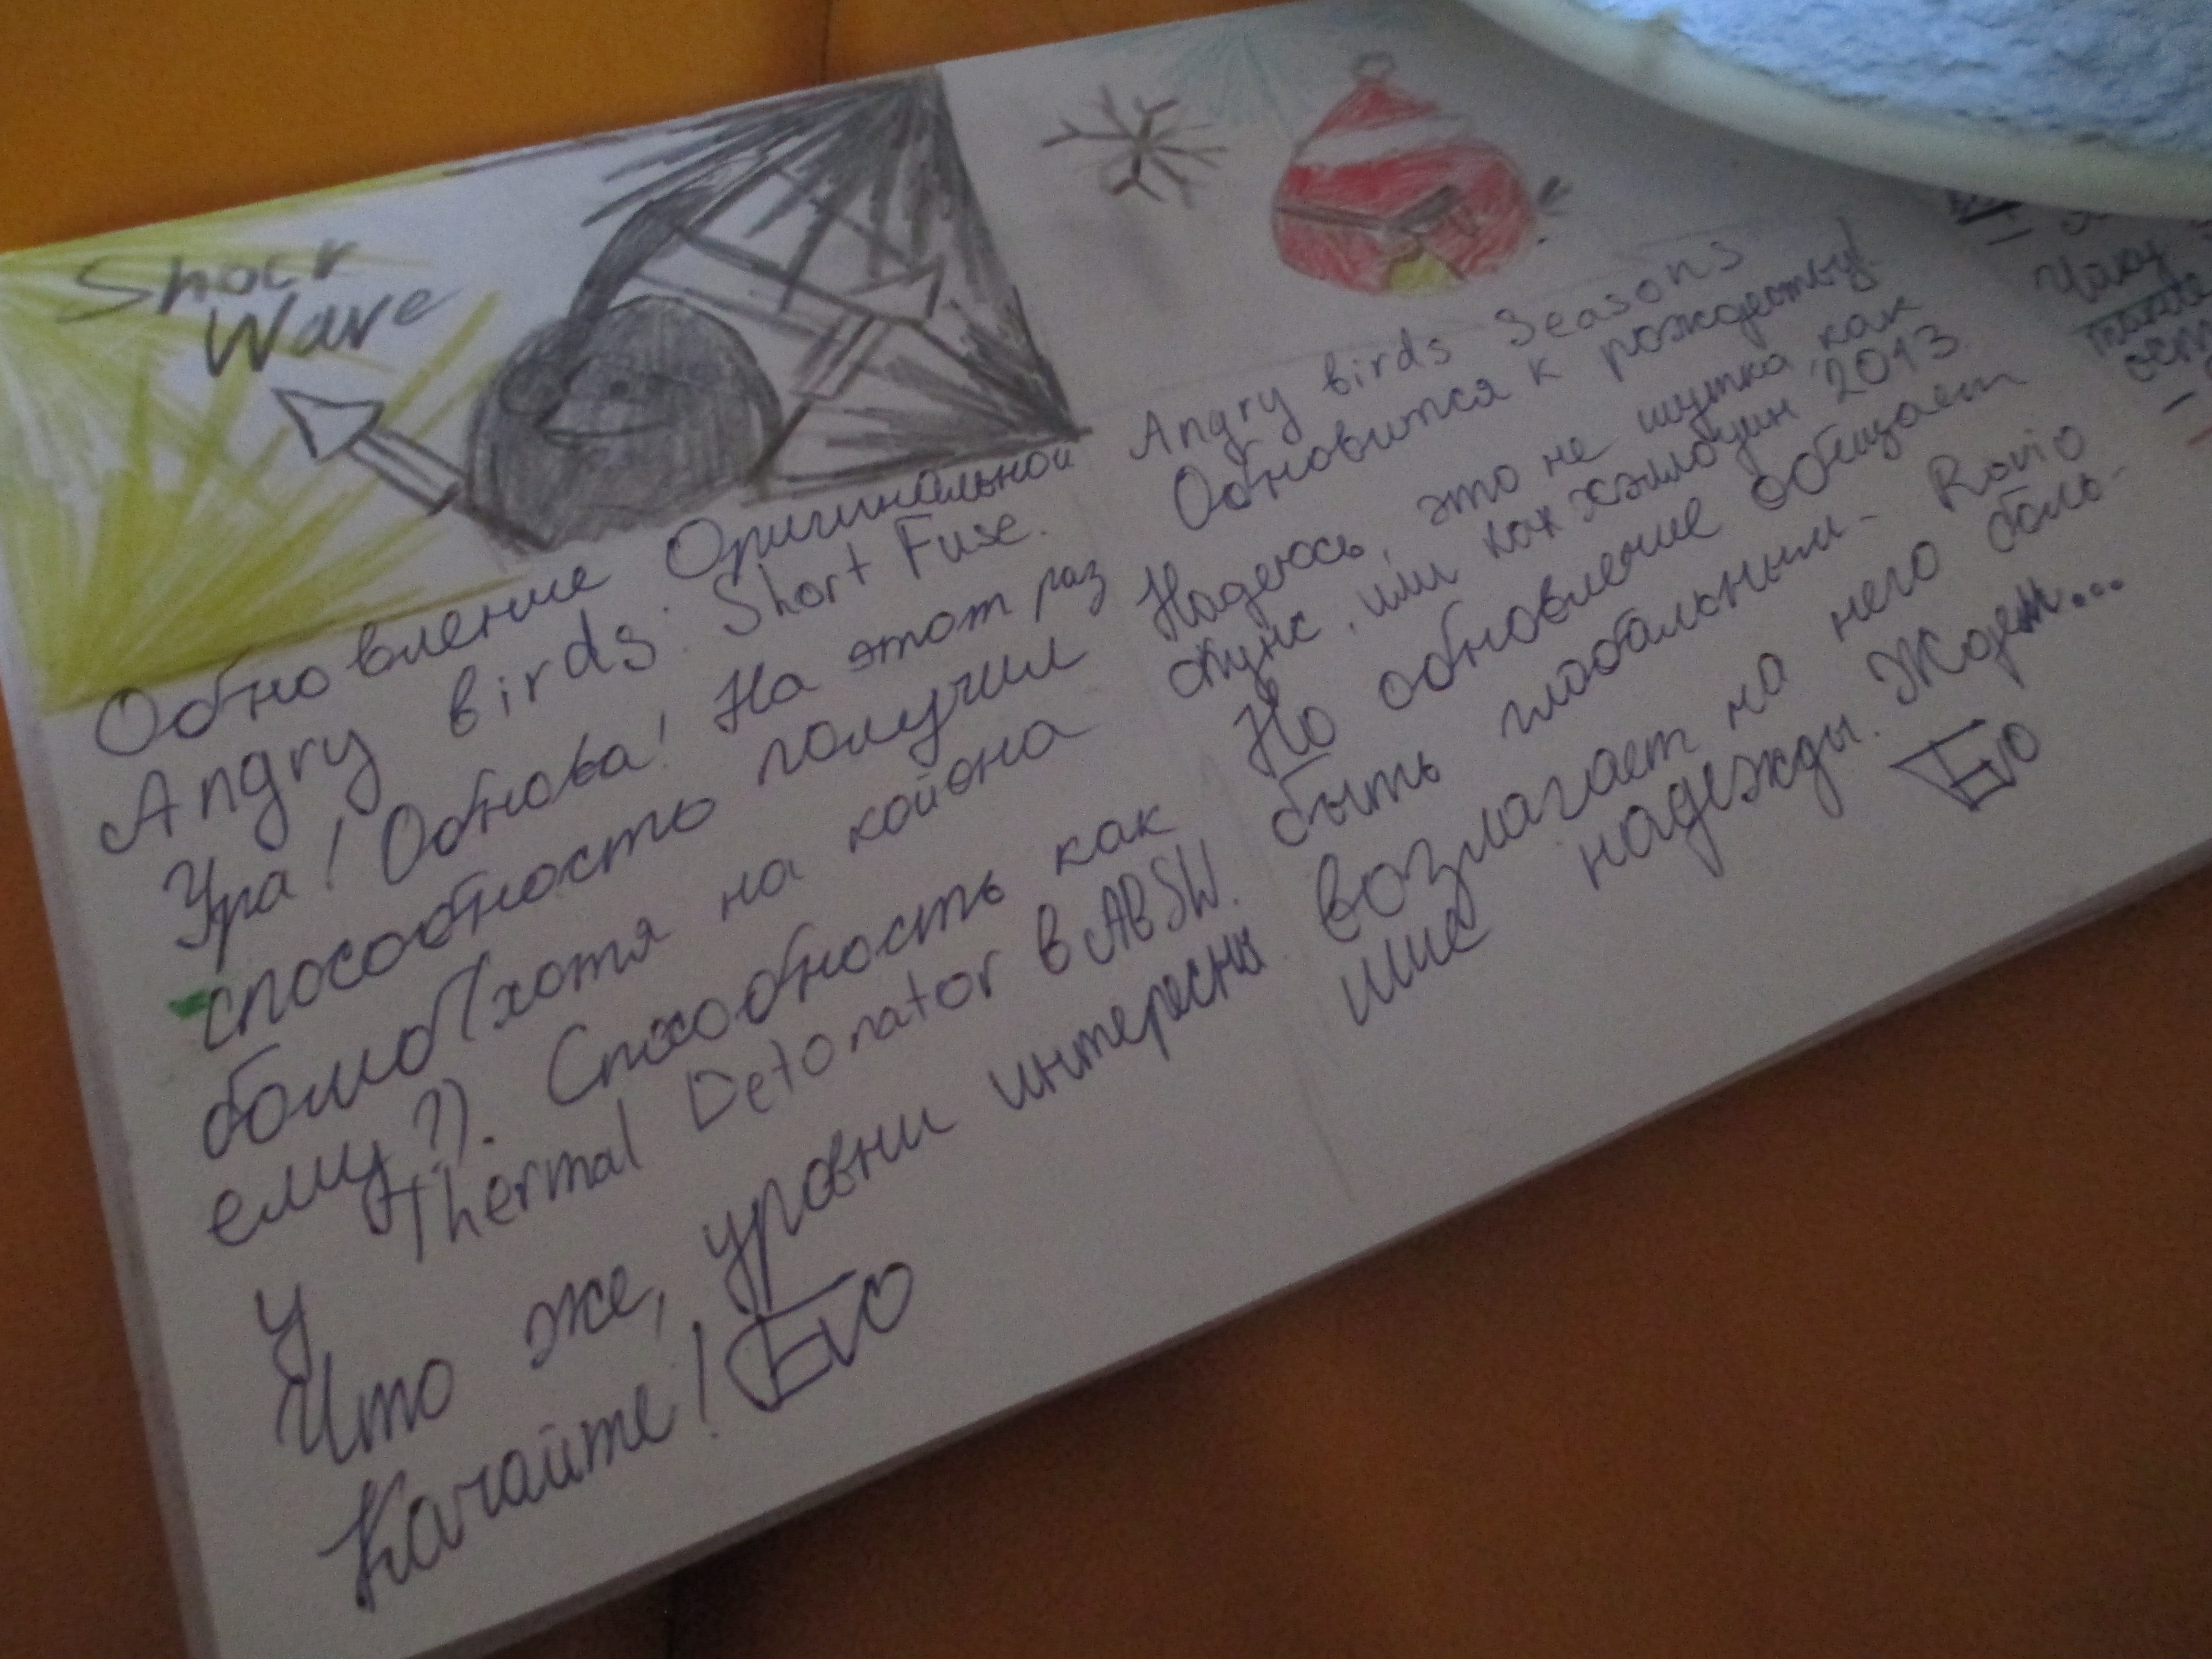 Shock
Wave
Обновление Оригинальной
Angry birds: Short Fuse.
Ура! Обнова! На этот раз
способность получил
бомб(хотя на койона
ему?). Способность как
у Thermal Detonator в ABSW.
Что же, уровни интересны
Качайте! БЮ
Angry birds Seasons
Обновится к рождеству!
Надеюсь, это не шутка, как
или как хэллоуин 2013
Но обновление обещает
быть глобальным- Rovio
возлагает на него боль-
шие надежды. Ждем...
БЮ